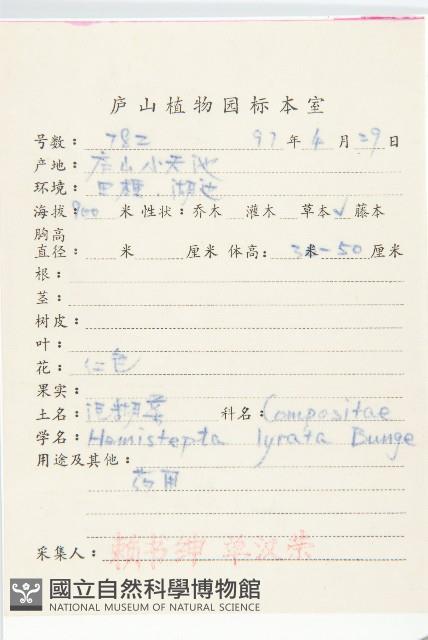 庐山植物园标本室
号数：782 97年4月29日
产地：庐山小天池
环境：田埂．湖边
海拔：900米 性状：乔木 灌木 草本✓ 藤本
胸高
直径： 米 厘米 体高：3米-50厘米
根：
茎：
树皮：
叶：
花：红色
果实：
土名：泥糊菜 科名：Compositae
学名：Hemistepta lyrata Bunge
用途及其他：
药用
采集人：赖书绅 单汉荣
國立自然科學博物館
NATIONAL MUSEUM OF NATURAL SCIENCE